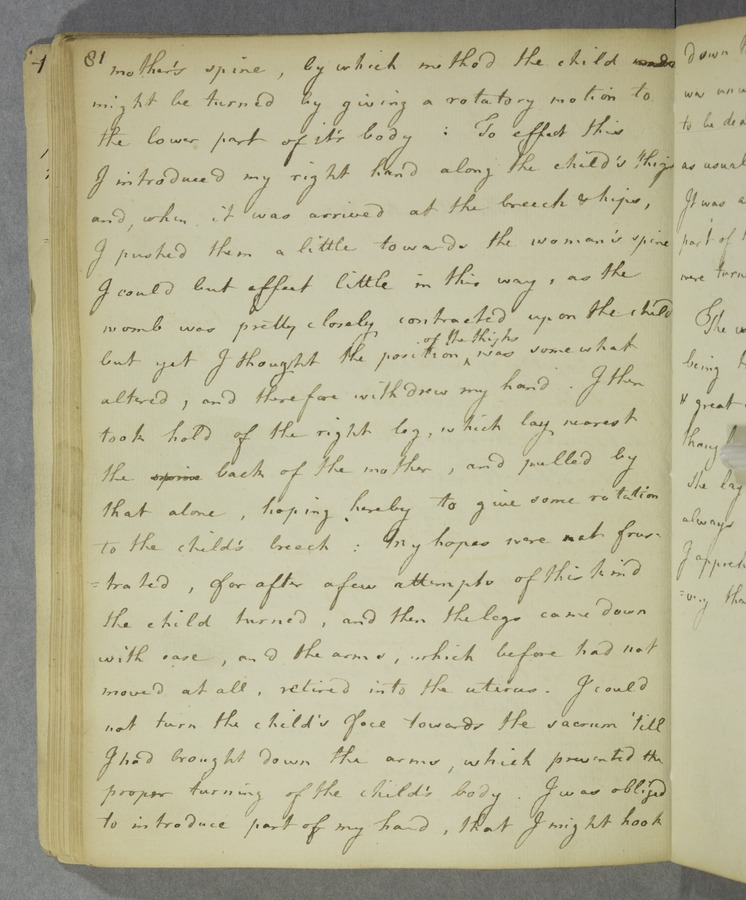 81
mother's spine, by which method the child
might be turned by giving a rotatory motion to
the lower part of it's body : To effect this
I introduced my right hand along the child's thigs
and, when it was arrived at the breech & hips,
I pushed them a little towards the woman's spine
I could but effect little in this way, as the
womb was pretty closely contracted upon the child
of the thighs
but yet I thought the position ‸ was somewhat
altered, and therefore withdrew my hand. I then
took hold of the right leg, which lay nearest
the spine back of the mother, and pulled by
that alone, hoping hereby to give some rotation
to the child's breech : My hopes were not frus-
=trated, for after a few attempts of this kind
the child turned, and then the legs came down
with ease, and the arms, which before had not
moved at all, retired into the uterus. I could
not turn the child's face towards the sacrum 'till
I had brought down the arms, which prevented the
proper turning of the child's body. I was obliged
to introduce part of my hand, that I might hook
down
was
to be
as usual
It was
part of
were turn
The
being
great
She lay
always
I appreh